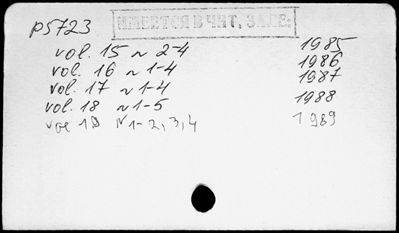 p5723 ИМЕЕТСЯ В ЧИТ. ЗАЛЕ:
vol. 15 N 2-4 1985
vol. 16 N 1-4 1986
vol. 17 N 1-4 1987
vol. 18 N 1-5 1988
vol 19 N 1-2, 3, 4 1989